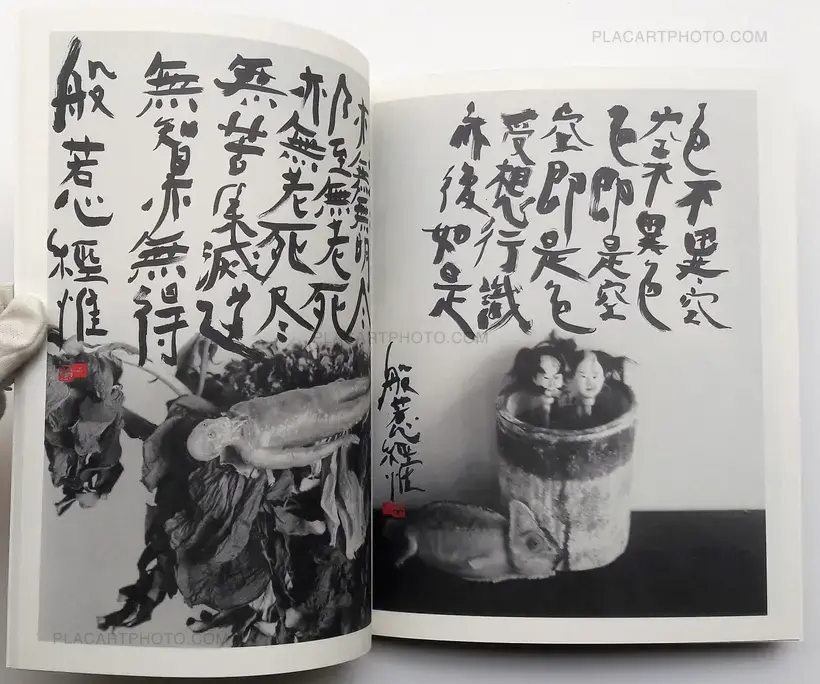 PLACARTPHOTO.COM
色不異空
空不異色
色即是空
空即是色
受想行識
亦復如是
般若心經惟
亦無無明尽
乃至無老死
亦無老死尽
無苦集滅道
無智亦無得
般若心經惟
PLACARTPHOTO.COM
PLACARTPHOTO.COM